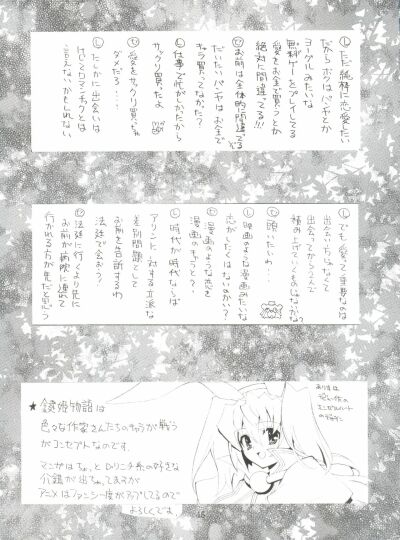 し ただ純粋に恋愛したい
だからボクはパンヤとか
ヨーグルみたいな
無料ゲーをプレイしてる
愛をお金で買うとか
絶対に間違ってる!!!
ひ お前は全体的に間違ってる
だいたいパンヤはお金で
キャラ買ってなかった?
し 仕事で忙しかったから
サックリ買ったよ
ひ 愛をサックリ買っちゃ
ダメだろ・・・・
し たしかに出会いは
けしてロマンチックとは
言えないかもしれない
し でも愛って重要なのは
出会いじゃなくて
出会ってから2人で
積み上げていくものじゃないかな?
ひ 頭いたいわ・・・
し 映画のような漫画みたいな
恋がしたくはないのかい?
ひ 漫画のような恋を
漫画のキャラと?
し 時代が時代ならば
アリンコに対する立派な
差別問題として
お前を告訴するわ
法廷で会おう?
ひ 法廷に行くより先に
お前が病院に連れて
行かれる方が先だと思う
★鍵姫物語は
色々な作家さんたちのキャラが戦う
がコンセプトなのです。
マンガはちょっとロリニク系の好きな
介錯が出ちゃってますが
アニメはファンシー度がアップしてるので
よろしくです。
ありすは
46